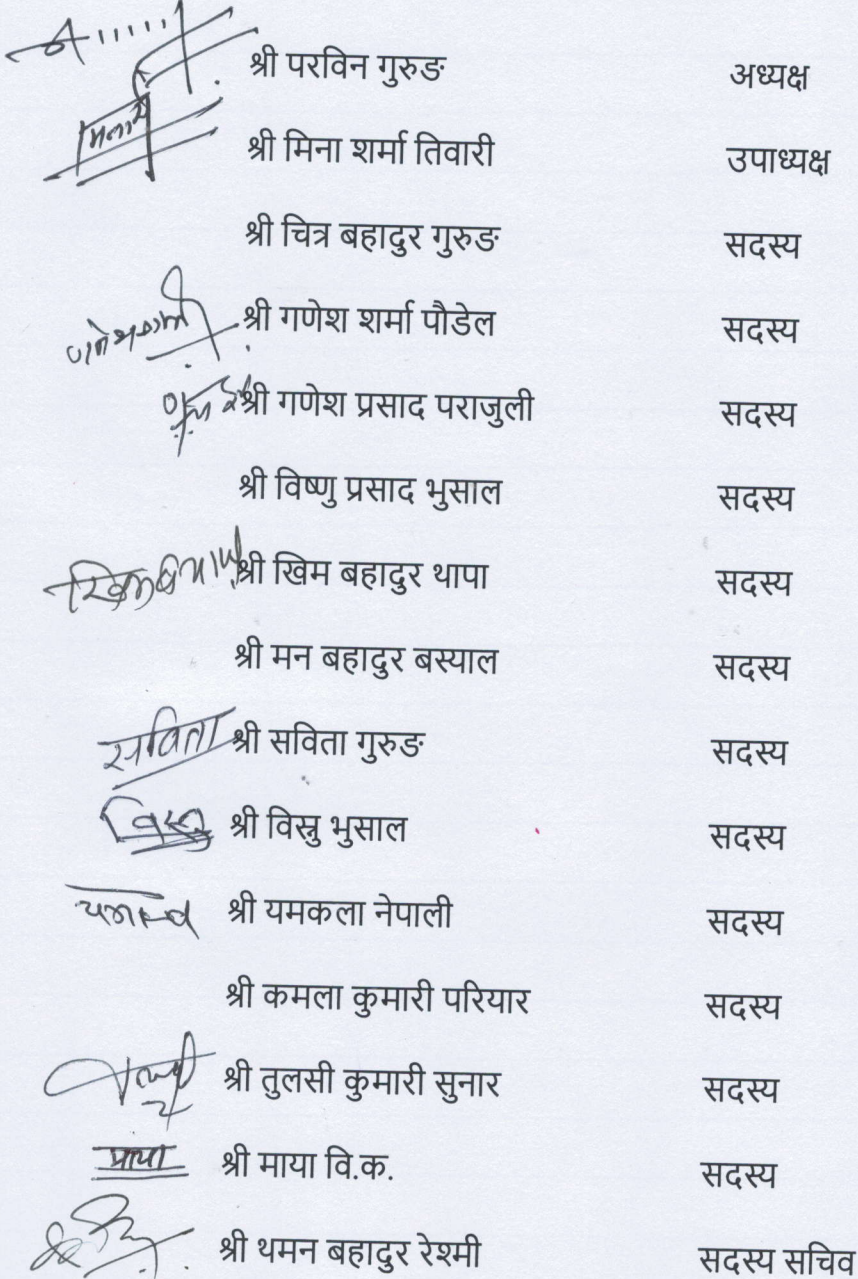 श्री परविन गुरुङ अध्यक्ष
श्री मिना शर्मा तिवारी उपाध्यक्ष
श्री चित्र बहादुर गुरुङ सदस्य
श्री गणेश शर्मा पौडेल सदस्य
श्री गणेश प्रसाद पराजुली सदस्य
श्री विष्णु प्रसाद भुसाल सदस्य
श्री खिम बहादुर थापा सदस्य
श्री मन बहादुर बस्याल सदस्य
सविता श्री सविता गुरुङ सदस्य
श्री विस्नु भुसाल सदस्य
श्री यमकला नेपाली सदस्य
श्री कमला कुमारी परियार सदस्य
श्री तुलसी कुमारी सुनार सदस्य
माया श्री माया वि.क. सदस्य
श्री थमन बहादुर रेश्मी सदस्य सचिव